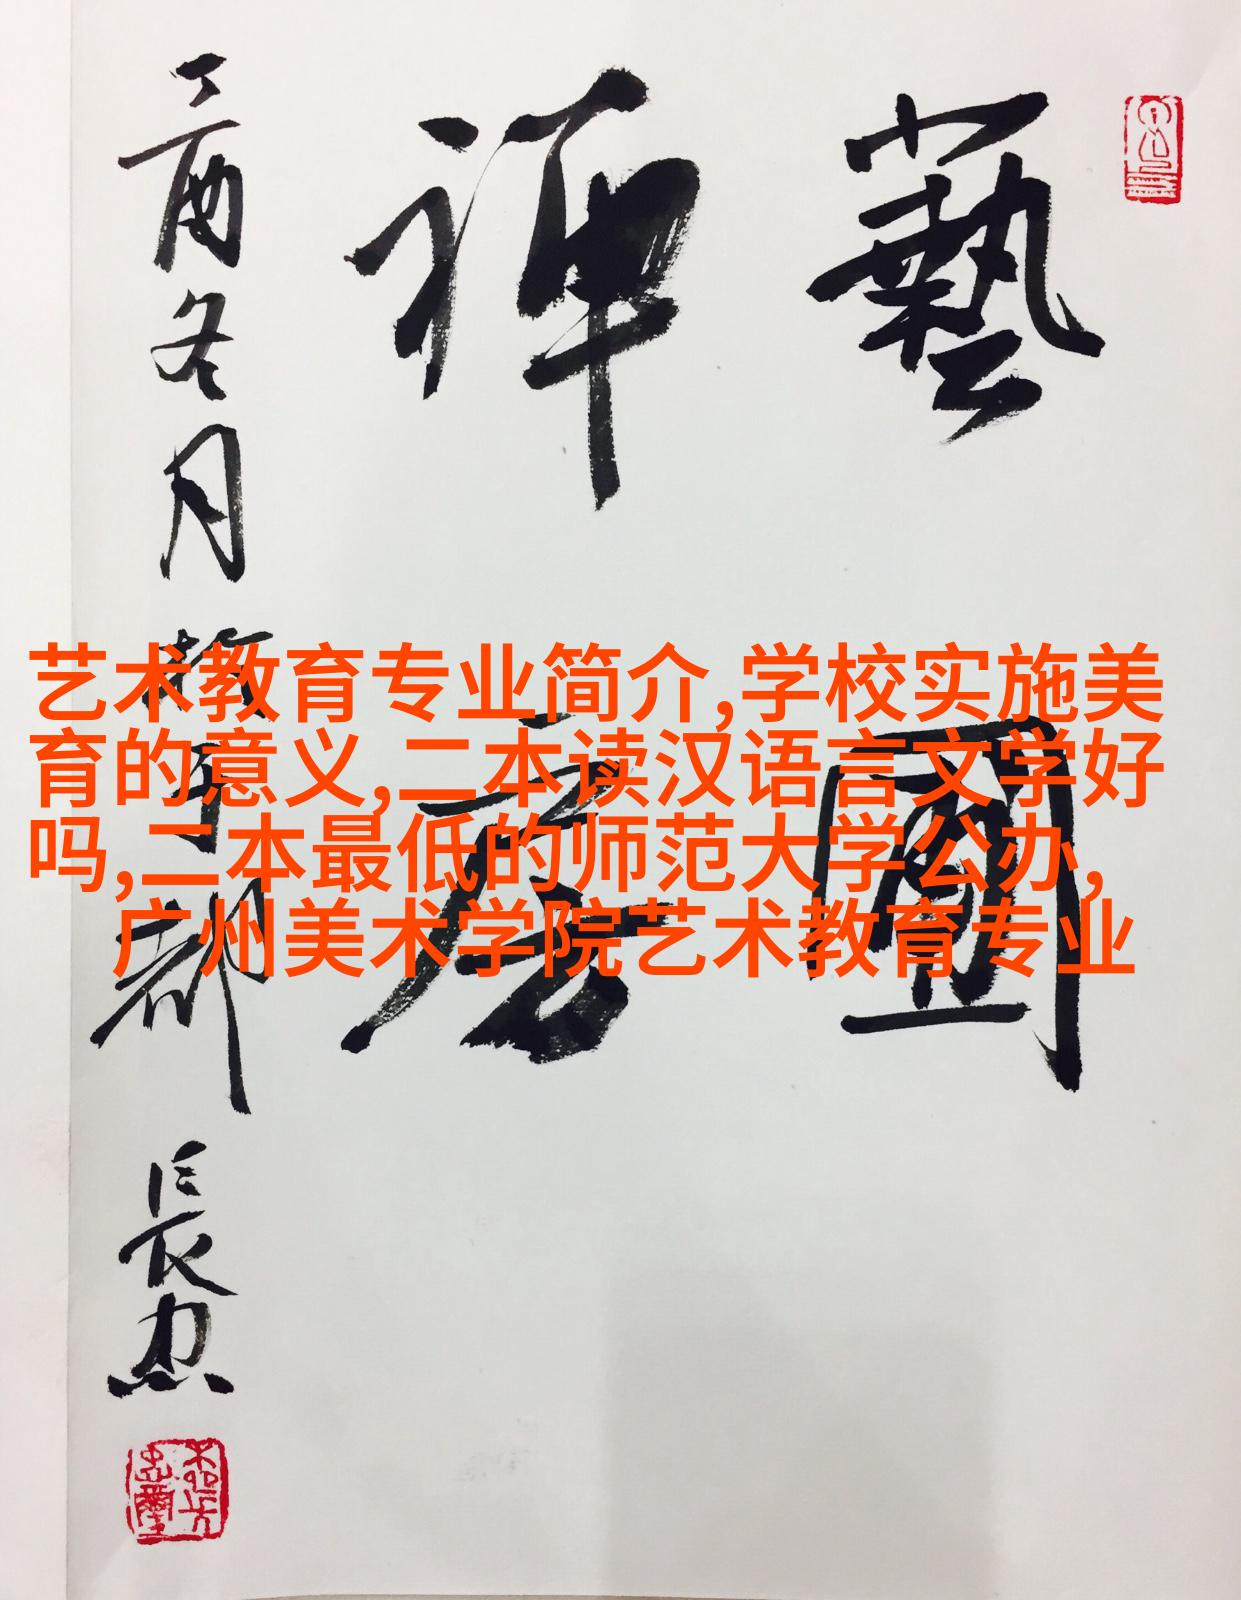 藝園
禅房
丁酉冬月
於
都
長忠
艺术教育专业简介,学校实施美
育的意义,二本读汉语言文学好
吗,二本最低的师范大学公办,
广州美术学院艺术教育专业